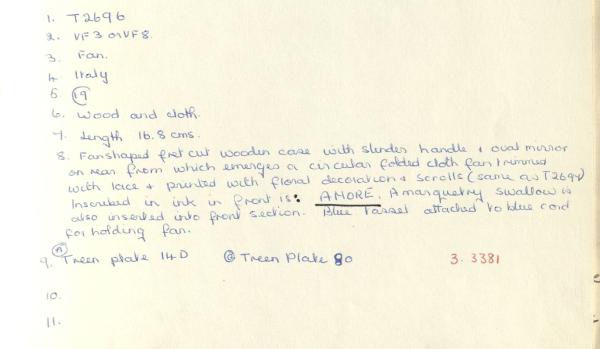 1. T2696
2. VF3 or VF8.
3. Fan.
4. Italy
5. 19
6. Wood and cloth.
7. Length 16.8 cms.
8. Fanshaped fret cut wooden case with slender handle & oval mirror
on rear from which emerges a circular folded cloth fan trimmed
with lace & printed with floral decoration & scrolls (same as T2694)
Inscribed in ink in front is: AMORE. A marquetry swallow is
also inserted into front section. Blue Tassel attached to blue cord
for holding fan.
9. (A) Treen plate 14D Treen Plate 80 3.3381
10.
11.